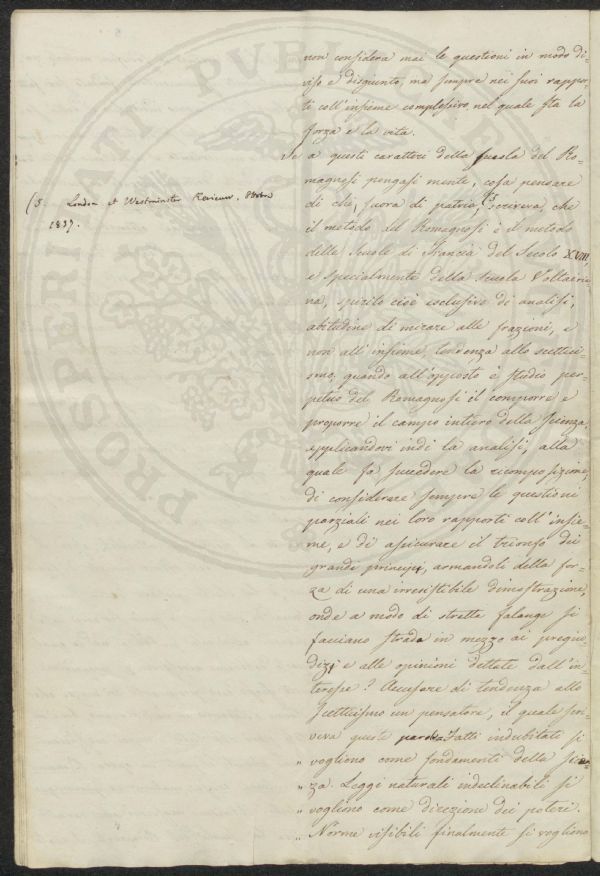 non considera mai le questioni in modo di-
viso e disgiunto, ma sempre nei suoi rappor-
ti coll'insieme complessivo, nel quale sta la
forza e la vita.
Se a questi caratteri della scuola del Ro-
magnosi pongasi mente, cosa pensare
di chi, fuora di patria, scriveva, che
(5. London et Westminster Review. Octobre
1837.
il metodo del Romagnosi è il metodo
delle Scuole di Francia del Secolo XVIII
e specialmente della scuola Volteria-
na, spirito cioè esclusivo di analisi,
abitudine di mirare alle frazioni, e
non all'insieme, tendenza allo scettici-
smo, quando all'opposto è studio per-
petuo del Romagnosi il comporre e
proporre il campo intiero della scienza,
applicandovi indi la analisi, alla
quale fa succedere la ricomposizione,
di considerare sempre le questioni
parziali nei loro rapporti coll'insie-
me, e di assicurare il trionfo dei
grandi principj, armandoli della for-
za di una irresistibile dimostrazione,
onde a modo di stretta falange si
facciano strada in mezzo ai pregiu-
dizj e alle opinioni dettate dall'in-
teresse? Accusare di tendenza allo
scetticismo un pensatore, il quale scri-
veva queste parole: Fatti indubitati si
" vogliono come fondamenti della scien-
" za. Leggi naturali indeclinabili si
" vogliono come direzione dei poteri.
" Norme visibili finalmente si vogliono
PROSPERITATI PVBLICAE